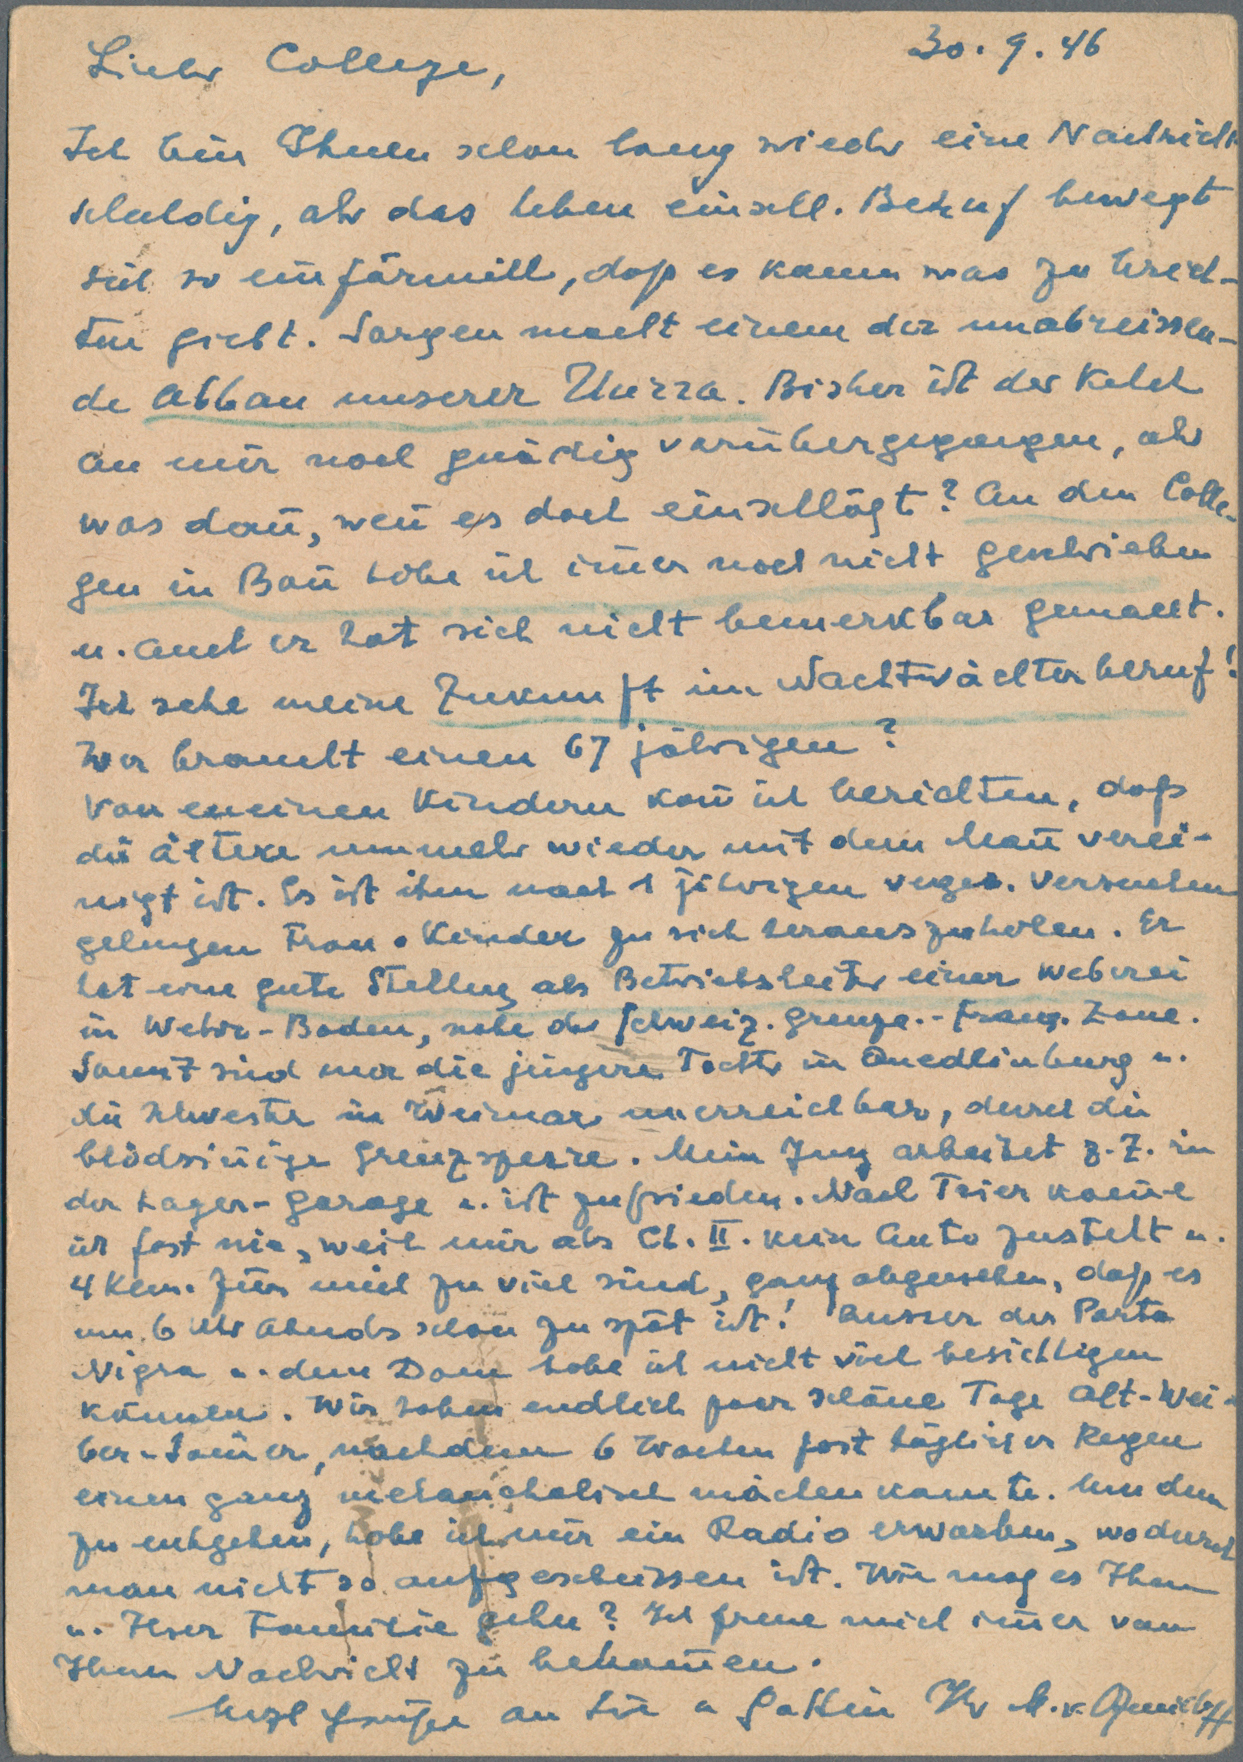 30.9.46
Lieber College,
Ich bin Ihnen schon lang wieder eine Nachricht
schuldig, aber das Leben einschl. Beruf bewegt
sich so einförmill, daß es kaum was zu berich-
ten giebt. Sorgen macht einem der unabreissen-
de Abbau unserer Unrra. Bisher ist der Kelch
an mir noch gnädig vorübergegangen, aber
was dañ, weñ es doch einschlägt? An den Colle-
gen in Boñ habe ich im̃er noch nicht geschrieben
u. auch er hat sich nicht bemerkbar gemacht.
Ich sehe meine Zukunft im Nachtwächterberuf!
Wer braucht einen 67 jährigen?
Von meinen Kindern kañ ich berichten, daß
die ältere nunmehr wieder mit dem Mañ verei-
nigt ist. Es ist ihm nach 1 jährigen verge. Versuchen
gelungen Frau u. Kinder zu sich herauszuholen. Er
hat eine gute Stellung als Betriebsleiter einer Weberei
in Wehr-Baden, nahe der Schweiz. Grenze. - Franz. Zone.
Somit sind nur die jüngere Tochter in Quedlinburg u.
die Schwester in Weimar unerreichbar, durch die
blödsiñige Grenzsperre. Mein Jung arbeitet z. Z. in
der Lager-Garage u. ist zufrieden. Nach Trier kom̃e
ich fast nie, weil mir als Cl. II. kein Auto zusteht u.
4 Klm. für mich zu viel sind, ganz abgesehen, daß es
um 6 Uhr Abends schon zu spät ist! Ausser der Porta
Nigra u. dem Dom habe ich nicht viel besichtigen
können. Wir haben endlich paar schöne Tage Alt-Wei-
ber-Som̃er, nachdem 6 Wochen fast täglicher Regen
einen ganz melancholisch machen konnte. Um dem
zu entgehen, habe ich mir ein Radio erworben, wodurch
man nicht so aufgeschmissen ist. Wie mag es Ihnen
u. Ihrer Familie gehn? Ich freue mich im̃er von
Ihnen Nachricht zu bekom̃en.
Herzl Grüße an Sie u Gattin Ihr M. v.